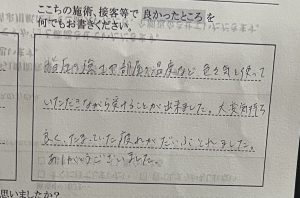 ここちの施術、接客等で良かったところを
何でもお書きください。
の強さや部屋の温度など、色々気を使って
いただきながら受けることが出来ました。大変気持ち
良く、たまっていた疲れがだいぶとれました。
ありがとうございました。
思いましたか?